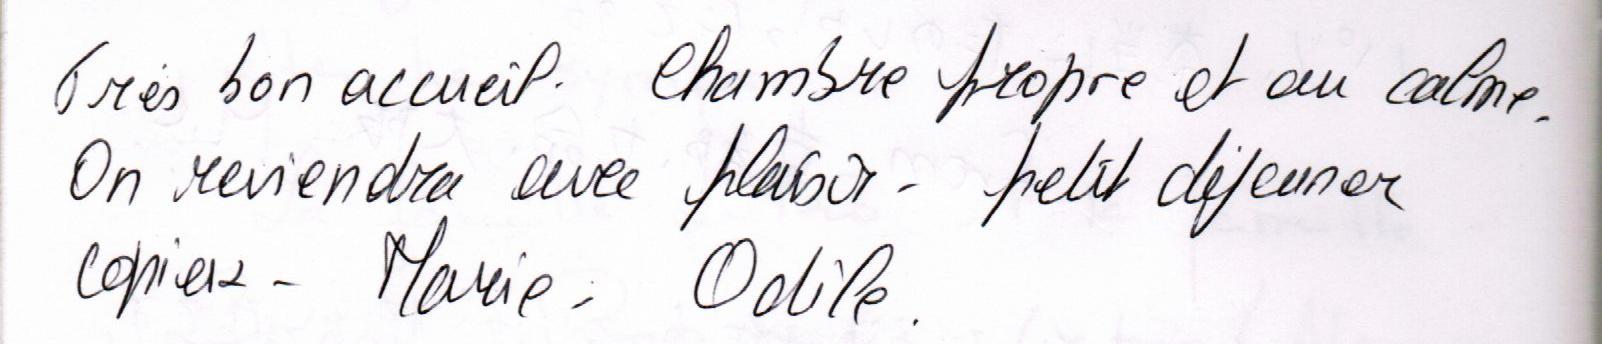 Très bon accueil. Chambre propre et au calme.
On reviendra avec plaisir - petit déjeuner
copieux - Marie - Odile.